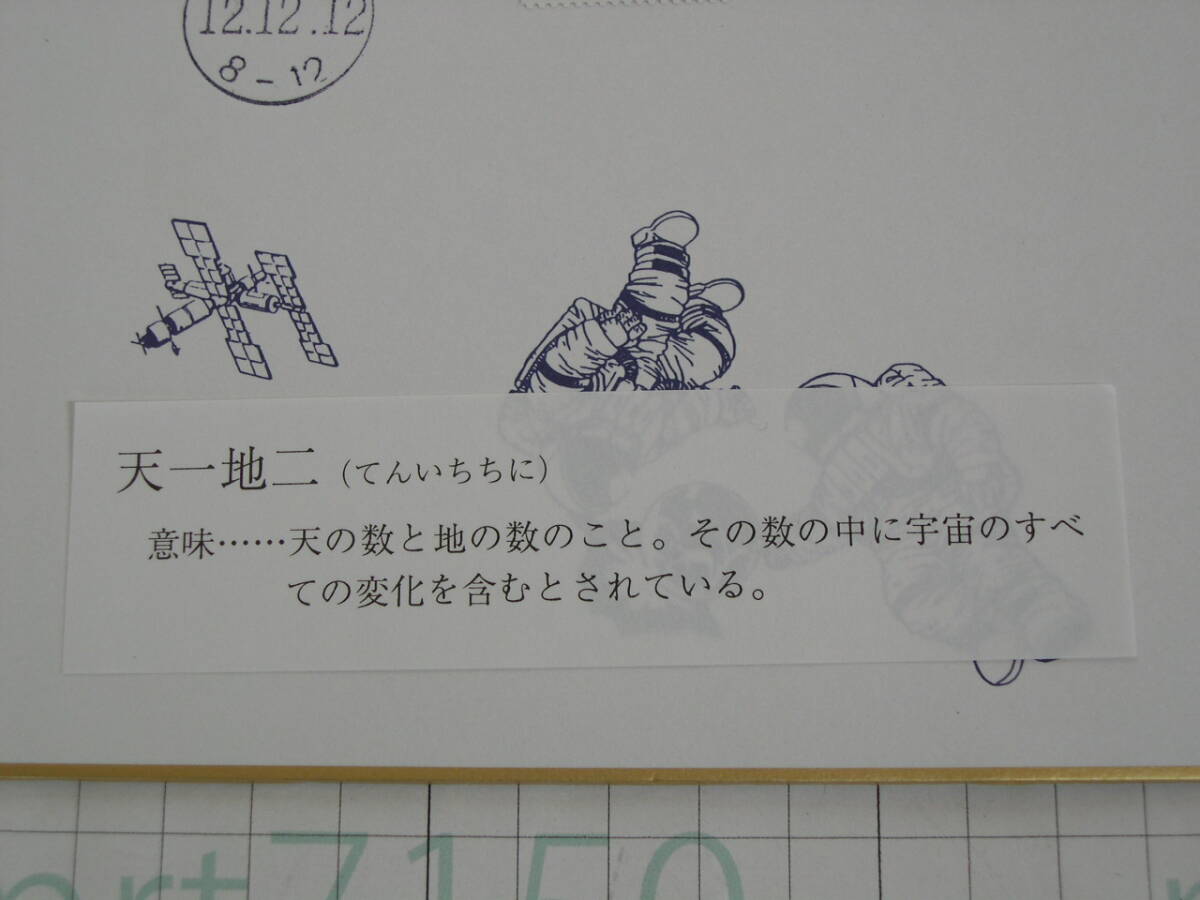 12.12.12
8-12
天一地二（てんいちちに）
意味……天の数と地の数のこと。その数の中に宇宙のすべ
ての変化を含むとされている。
7150